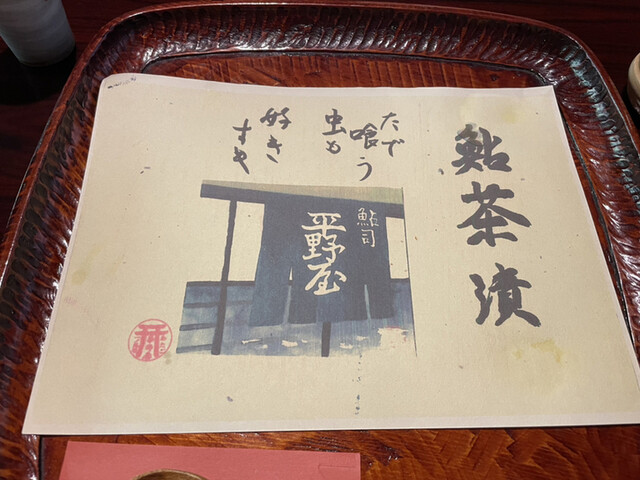 鮎茶漬
たで
喰う
虫も
好き
すき
鮎司
平野屋